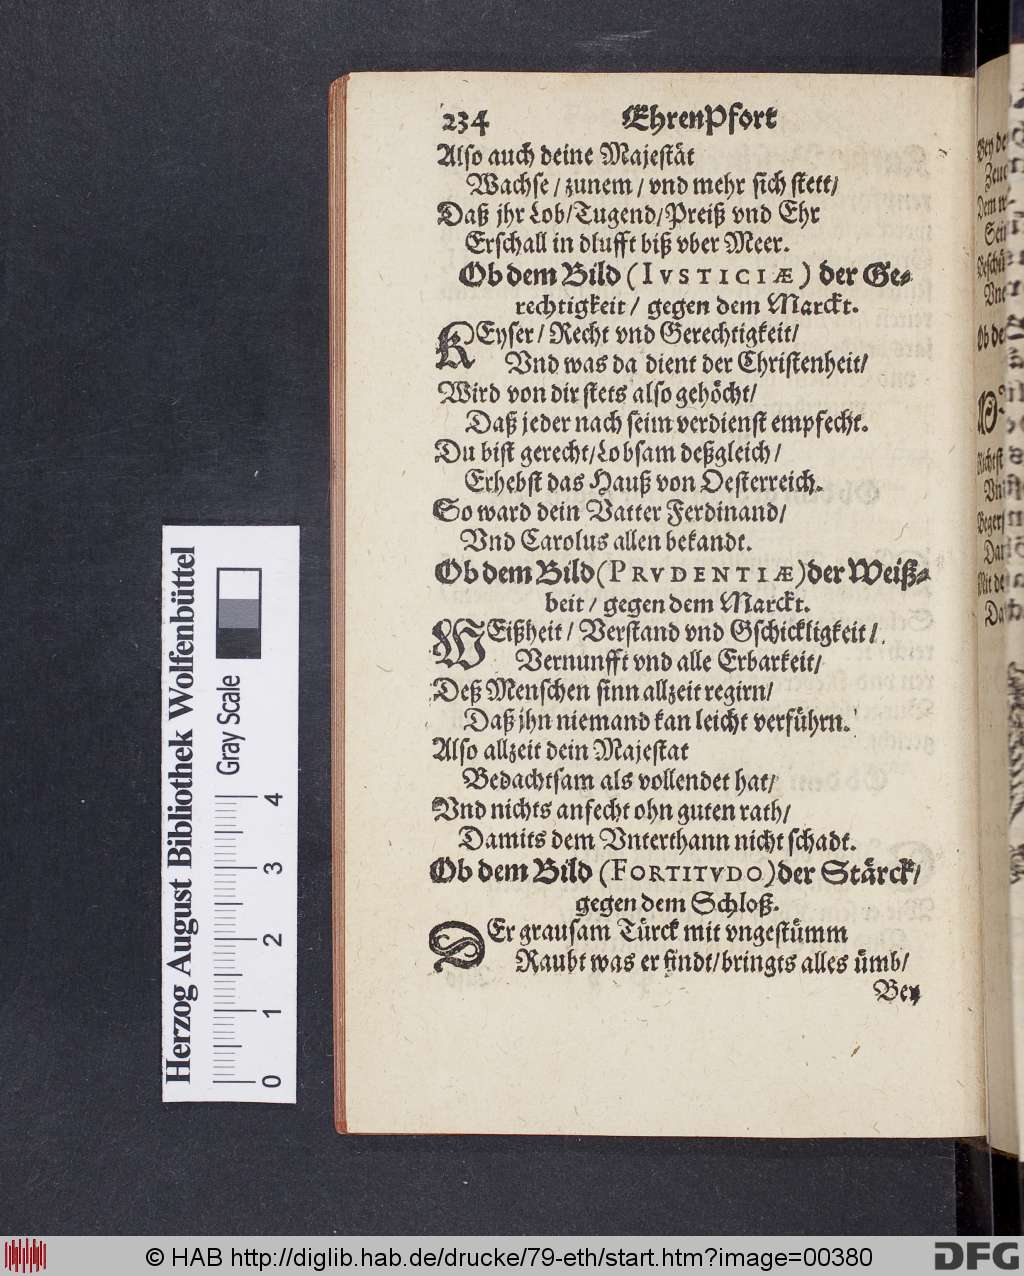 234 EhrenPfort
Also auch deine Majestät
Wachse / zunem / vnd mehr sich stett /
Daß jhr Lob / Tugend / Preiß vnd Ehr
Erschall in dlufft biß vber Meer.
Ob dem Bild (IVSTICIÆ) der Ge-
rechtigkeit / gegen dem Marckt.
KEyser / Recht vnd Gerechtigkeit /
Vnd was da dient der Christenheit /
Wird von dir stets also gehöcht /
Daß jeder nach seim verdienst empfecht.
Du bist gerecht / Lobsam deßgleich /
Erhebst das Hauß von Oesterreich.
So ward dein Vatter Ferdinand /
Vnd Carolus allen bekandt.
Ob dem Bild (PRVDENTIÆ) der Weiß-
heit / gegen dem Marckt.
WEißheit / Verstand vnd Gschickligkeit /
Vernunfft vnd alle Erbarkeit /
Deß Menschen sinn allzeit regirn /
Daß jhn niemand kan leicht verführn.
Also allzeit dein Majestat
Bedachtsam als vollendet hat /
Vnd nichts anfecht ohn guten rath /
Damits dem Vnterthann nicht schadt.
Ob dem Bild (FORTITVDO) der Stärck /
gegen dem Schloß.
DEr grausam Türck mit vngestümm
Raubt was er findt / bringts alles ümb /
Bey
Herzog August Bibliothek Wolfenbüttel
Gray Scale
0 1 2 3 4
© HAB http://diglib.hab.de/drucke/79-eth/start.htm?image=00380
DFG